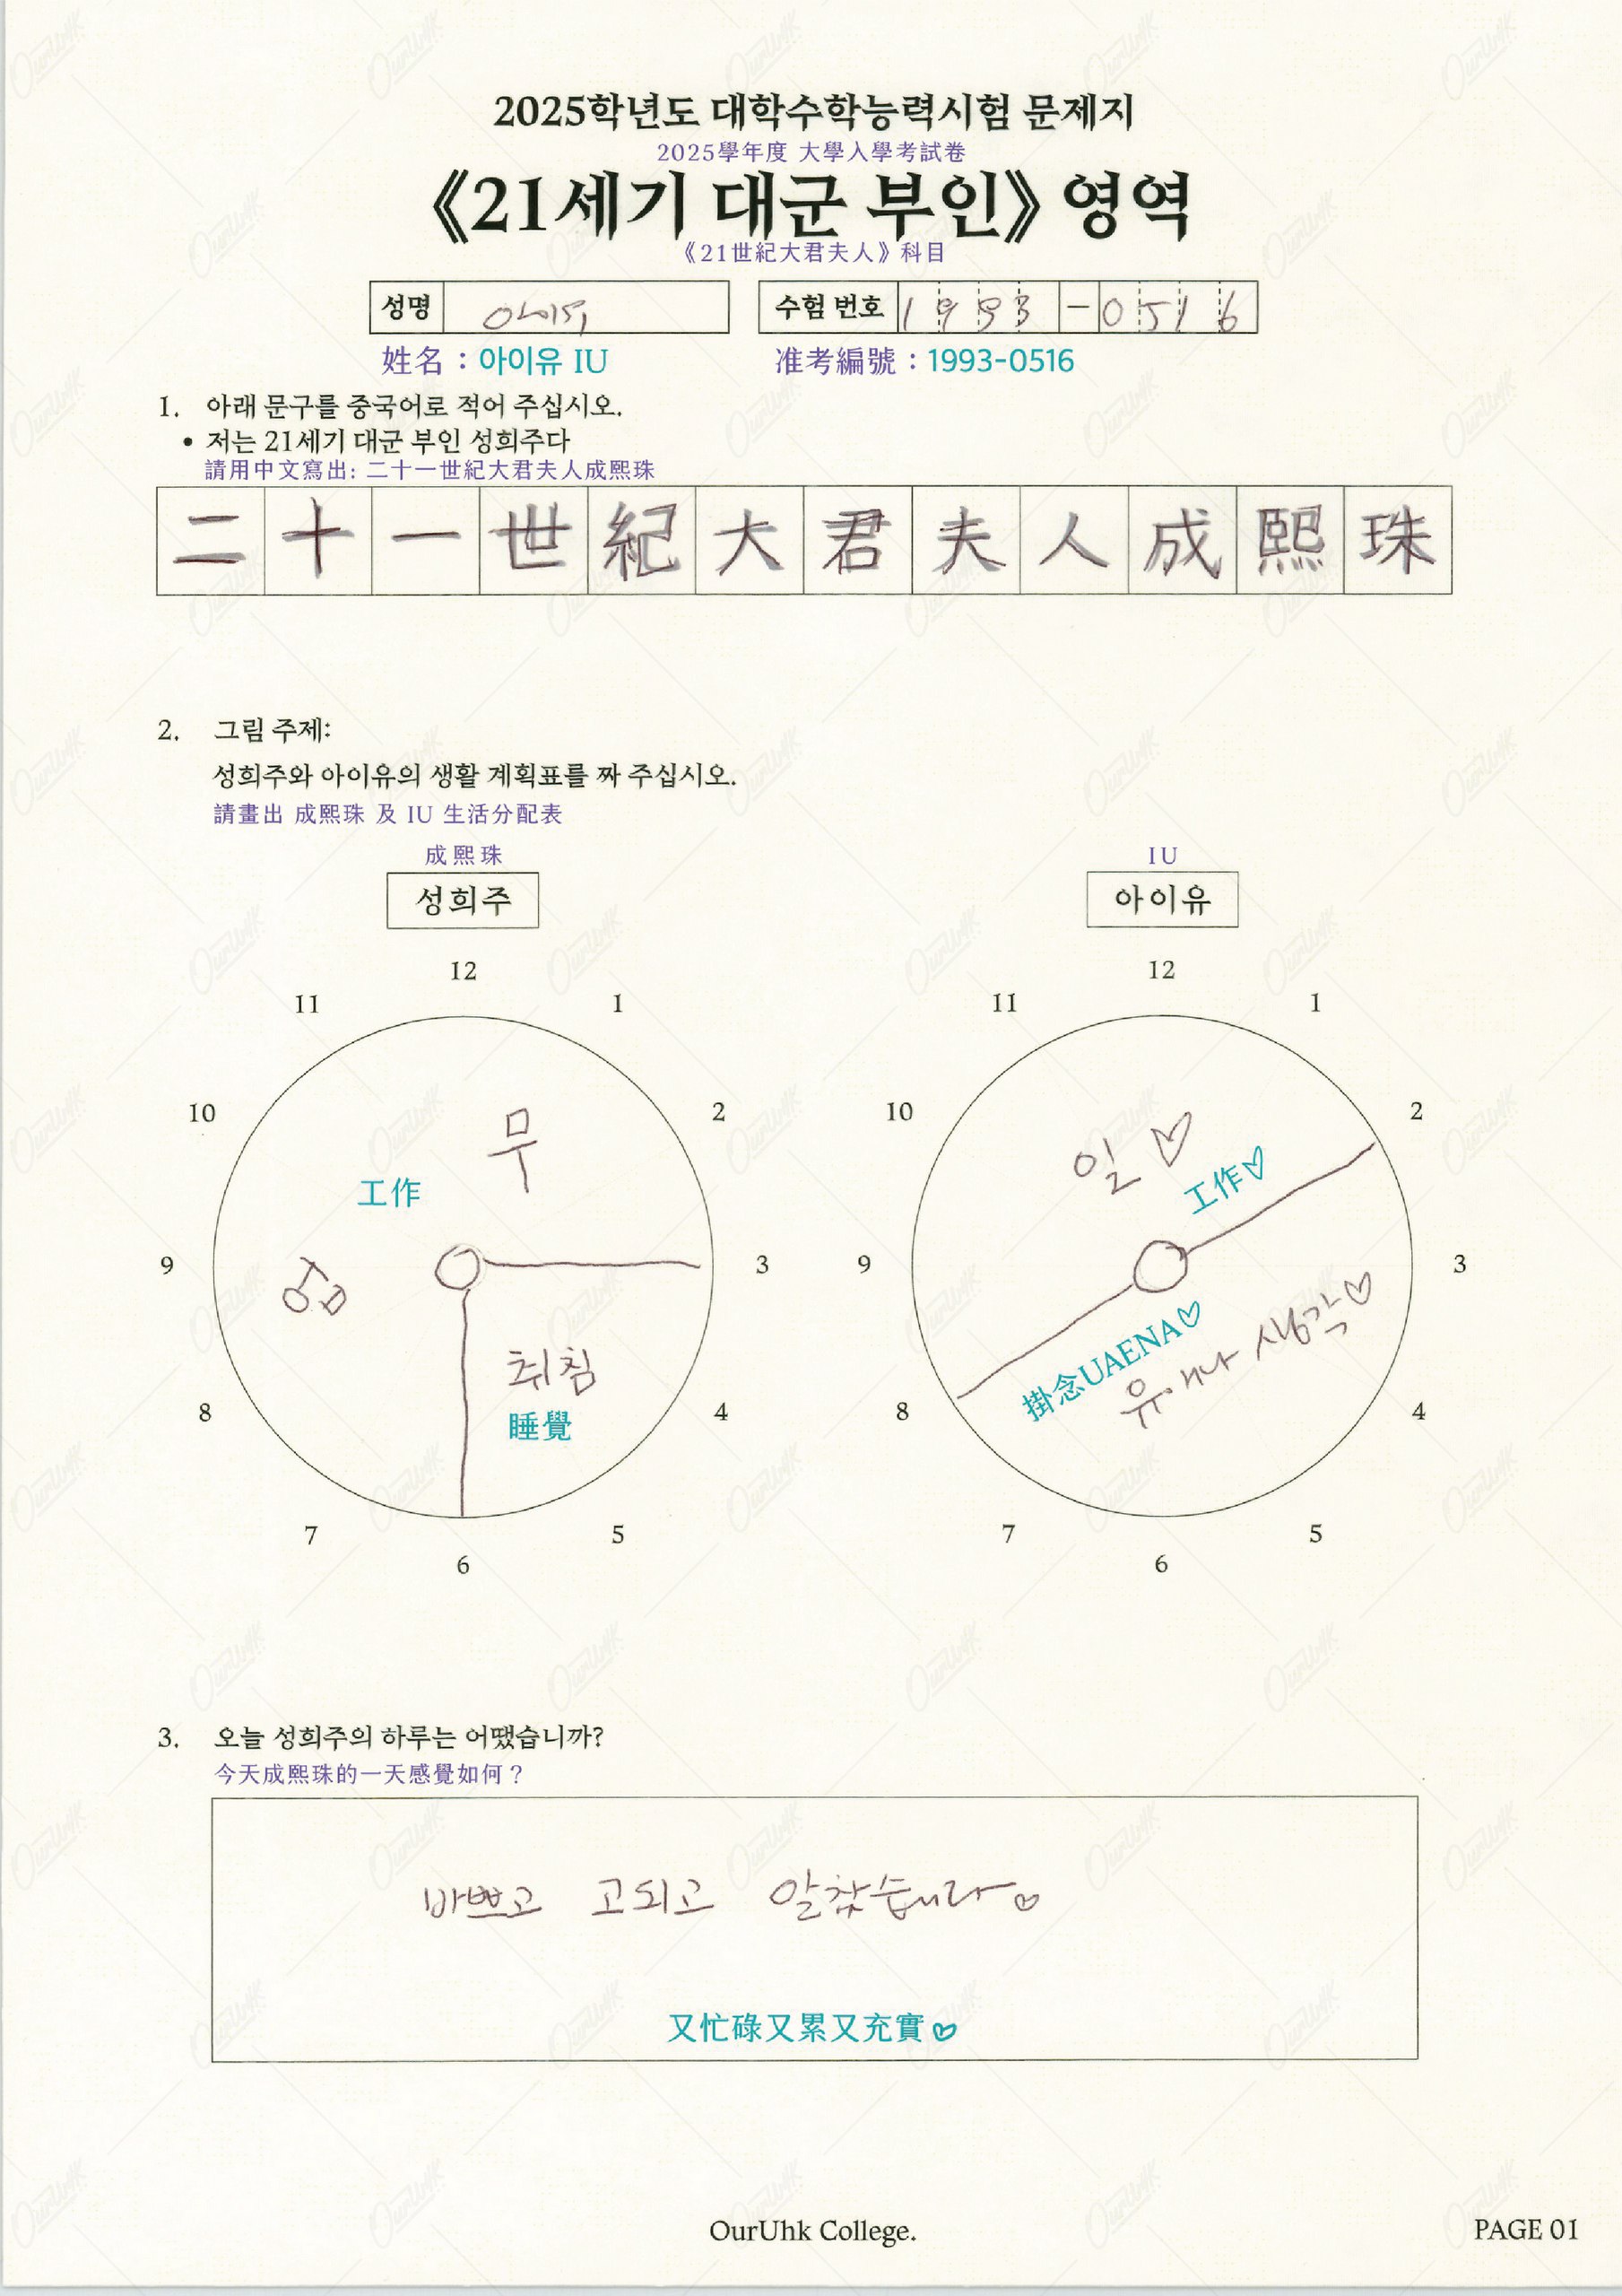 2025학년도 대학수학능력시험 문제지
2025學年度 大學入學考試卷
《21세기 대군 부인》 영역
《21世紀大君夫人》科目
성명 아이유
수험 번호 1993-0516
姓名：아이유 IU
准考編號：1993-0516
1. 아래 문구를 중국어로 적어 주십시오.
• 저는 21세기 대군 부인 성희주다
請用中文寫出: 二十一世紀大君夫人成熙珠
二十一世紀大君夫人成熙珠
2. 그림 주제:
성희주와 아이유의 생활 계획표를 짜 주십시오.
請畫出 成熙珠 及 IU 生活分配表
成熙珠
성희주
12
1
2
3
4
5
6
7
8
9
10
11
무
工作
업
취침
睡覺
IU
아이유
12
1
2
3
4
5
6
7
8
9
10
11
일♡
工作♡
掛念UAENA♡
유애나 생각♡
3. 오늘 성희주의 하루는 어땠습니까?
今天成熙珠的一天感覺如何？
바쁘고 고되고 알찼습니다♡
又忙碌又累又充實♡
OurUhk College.
PAGE 01